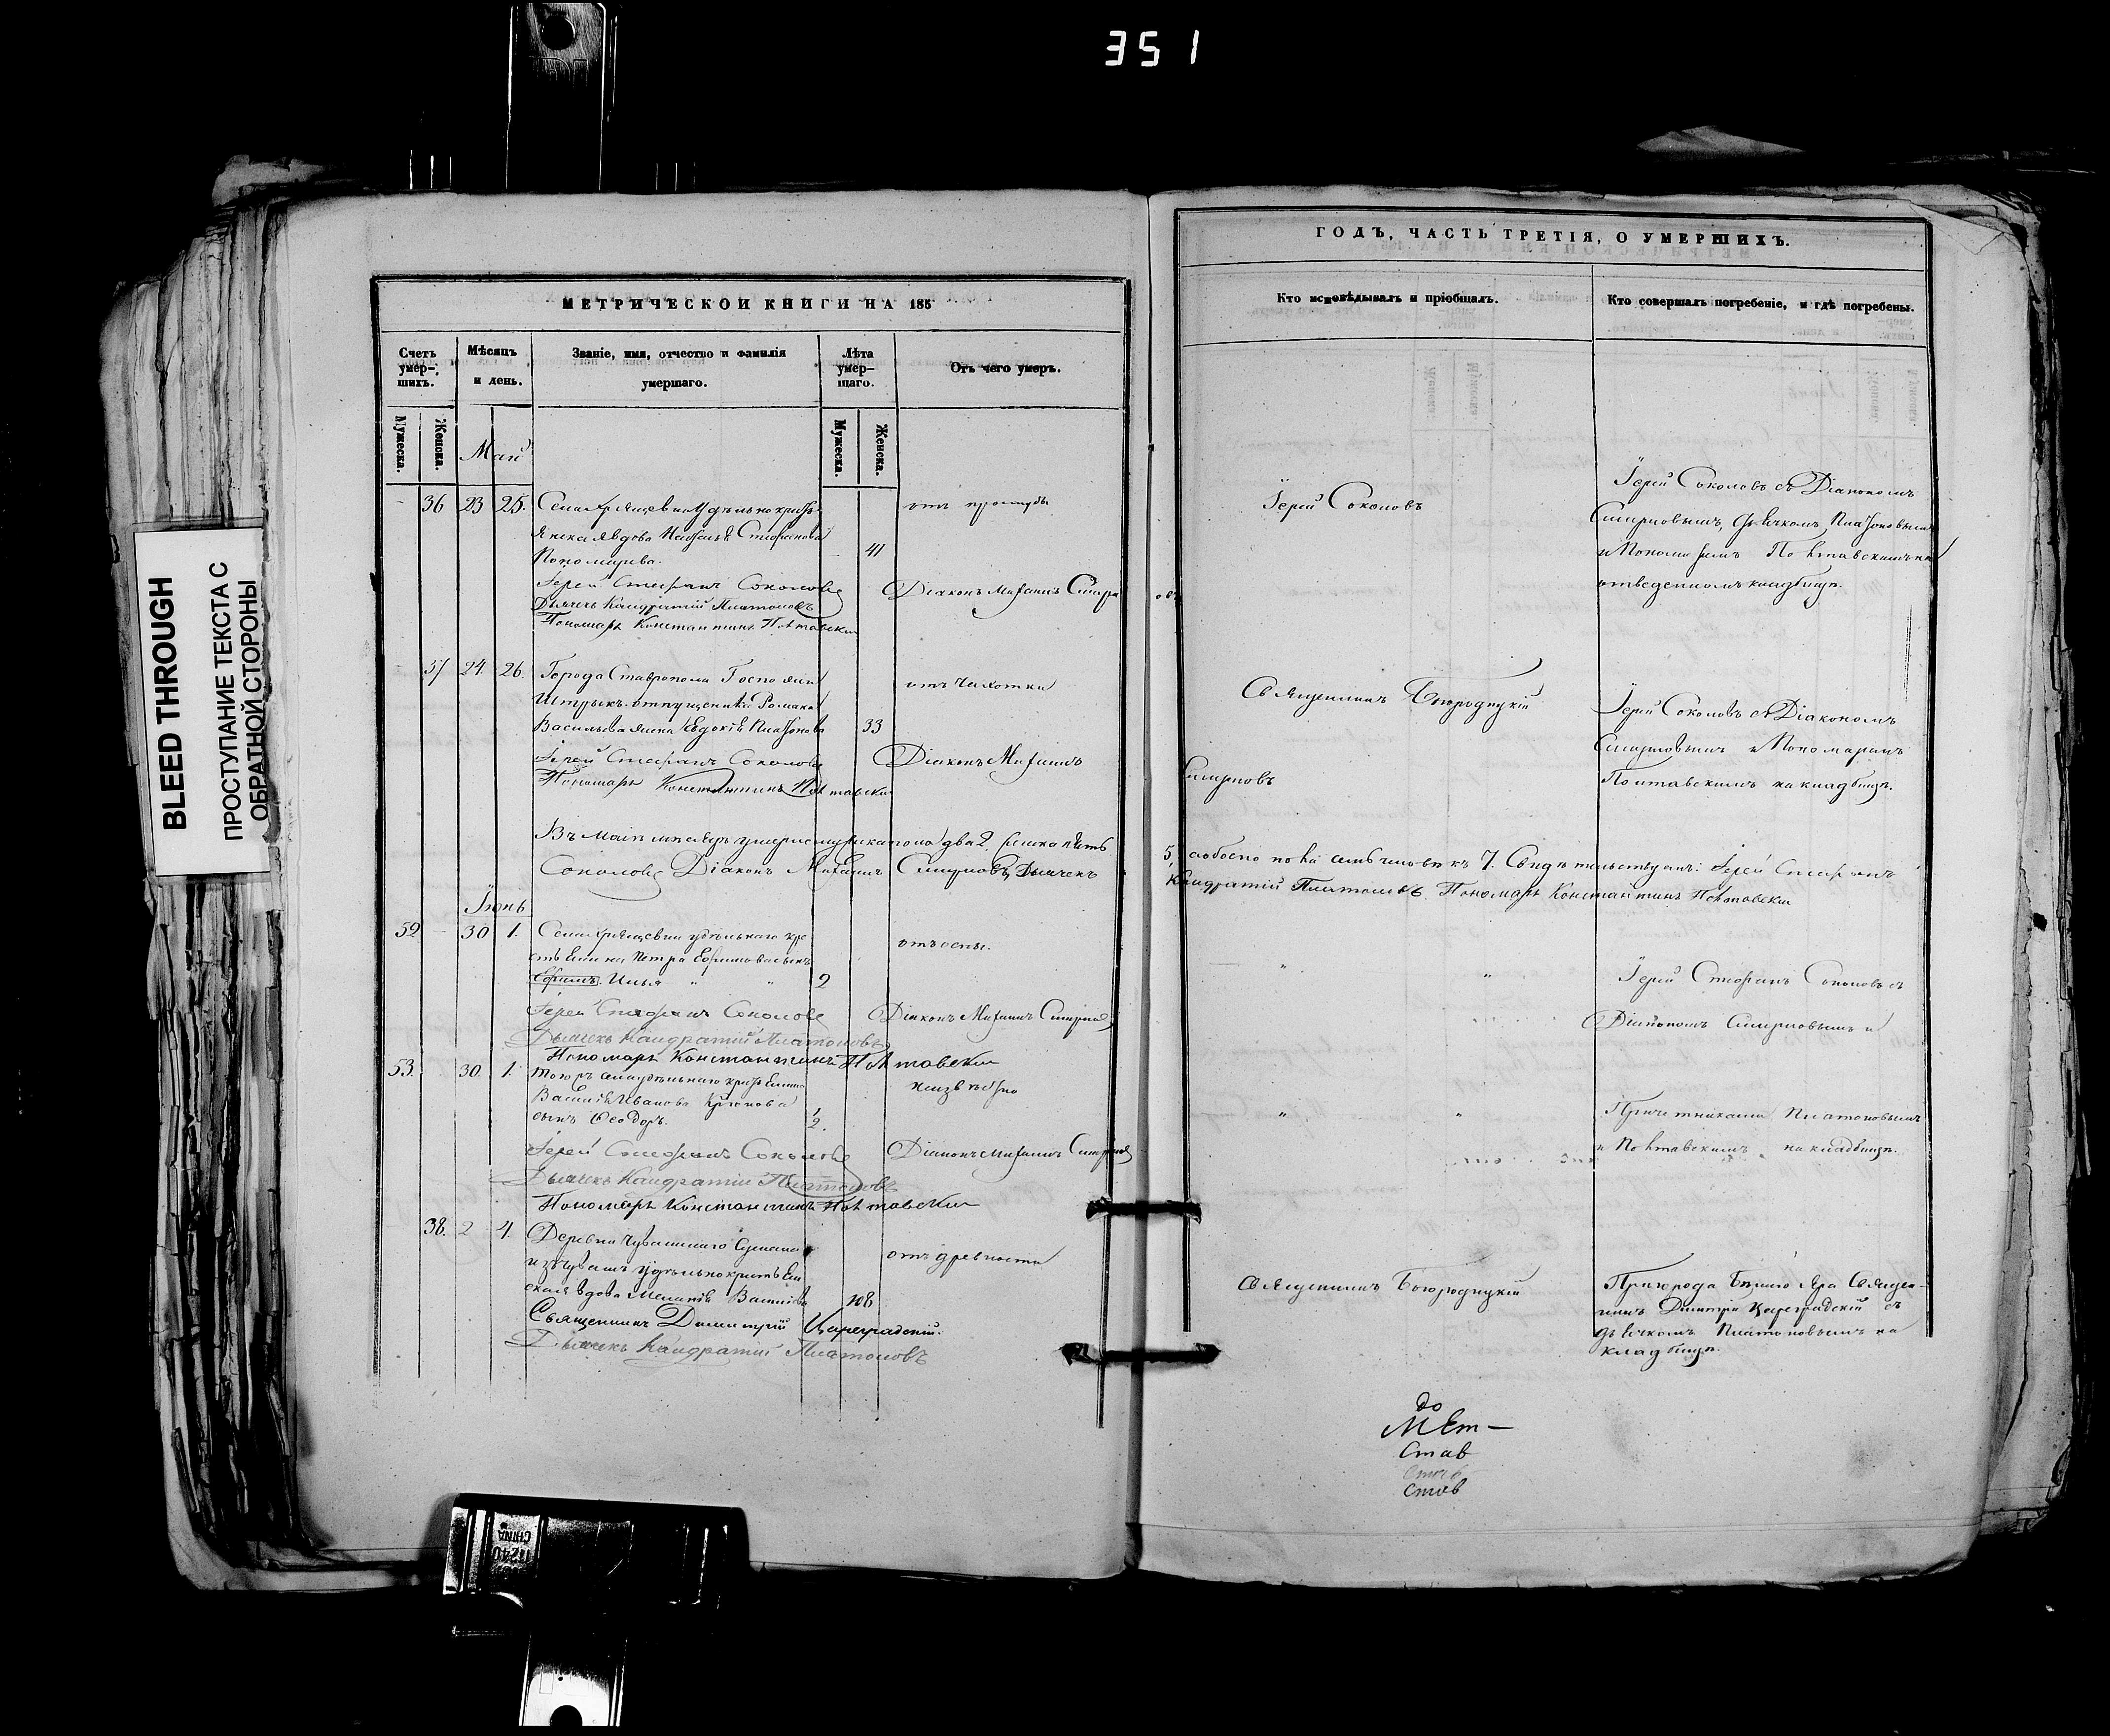 351
BLEED THROUGH
ПРОСТУПАНИЕ ТЕКСТА С
ОБРАТНОЙ СТОРОНЫ
МЕТРИЧЕСКОИ КНИГИ НА 185
Счетъ умер-шихъ.
Мѣсяцъ и день.
Званіе, имя, отчество и фамилія умершаго.
Лѣта умер-шаго.
Отъ чего умеръ.
Мужеска.
Женска.
Мужеска.
Женска.
Май
36 23 25.
вдова Стефанова
Пономарева.
41
отъ простуды
Іерей Стефанъ Соколовъ
Діаконъ Михаилъ Смирновъ
Дьячекъ Кандратій Платоновъ
Пономарь Константинъ Полтавскій
37 24. 26.
Города Ставрополя Госпожи
отпущенника Романа
Васильева жена Евдокія Платонова
33
отъ чахотки
Іерей Стефанъ Соколовъ
Діаконъ Михаилъ
Смирновъ
Пономарь Константинъ Полтавскій
Въ Маѣ мѣсяцѣ умерло мужеска пола два 2. женска пять
5, обоего пола семь человѣкъ 7. Свидѣтельствуемъ: Іерей Стефанъ
Соколовъ Діаконъ Михаилъ Смирновъ, Дьячекъ
Кандратій Платоновъ. Пономарь Константинъ Полтавскій
Іюнь
52 30 1.
Села Хрящевки удѣльнаго кре
стьянина Петра Ефимова сынъ
Ефимъ. Илья " "
2
отъ оспы.
Іерей Стефанъ Соколовъ
Діаконъ Михаилъ Смирновъ
Дьячекъ Кандратій Платоновъ
Пономарь Константинъ Полтавскій
53. 30. 1.
Тогоже села удѣльнаго крестьянина
Василія Иванова Крюкова
сынъ Ѳеодоръ.
1/2.
неизвѣстно
Іерей Стефанъ Соколовъ
Діаконъ Михаилъ Смирновъ
Дьячекъ Кандратій Платоновъ
Пономарь Константинъ Полтавскій
38. 2 4.
Деревни Чувашскаго
изъ чувашъ удѣльно крестьян
ская вдова
108
отъ древности
Священникъ Димитрій Цареградскій.
Дьячекъ Кандратій Платоновъ
ГОДЪ, ЧАСТЬ ТРЕТІЯ, О УМЕРШИХЪ.
Кто исповѣдывалъ и пріобщалъ.
Кто совершалъ погребеніе, и гдѣ погребены.
Іерей Соколовъ
Іерей Соколовъ съ Діакономъ
Смирновымъ, Дьячкомъ Платоновымъ
и Пономаремъ Полтавскимъ на
отведенномъ кладбищѣ.
Священникъ Богородицкій
Іерей Соколовъ съ Діакономъ
Смирновымъ и Пономаремъ
Полтавскимъ на кладбищѣ.
" "
Іерей Стефанъ Соколовъ съ
Діакономъ Смирновымъ и
" "
Причетниками Платоновымъ
и Полтавскимъ на кладбищѣ.
Священникъ Богородицкій
Пригорода Бѣлаго Яра Священ-
никъ Димитрій Цареградскій съ
дьячкомъ Платоновымъ на
кладбищѣ.
до
Мет—
Став
Став
Став